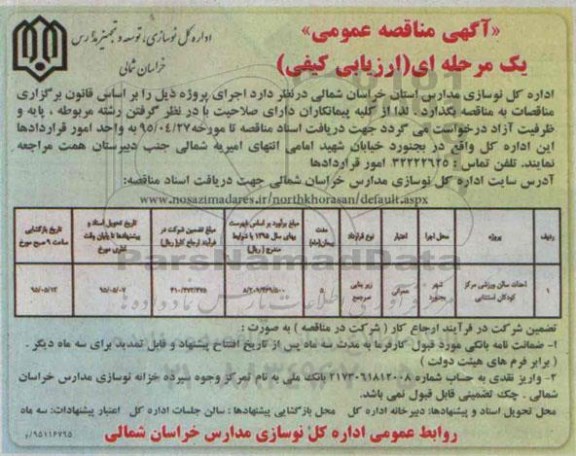 «آگهی مناقصه عمومی»
یک مرحله ای(ارزیابی کیفی)
اداره کل نوسازی، توسعه و تجهیز مدارس
خراسان شمالی
اداره کل نوسازی مدارس استان خراسان شمالی درنظر دارد اجرای پروژه ذیل را بر اساس قانون برگزاری
مناقصات به مناقصه بگذارد. لذا از کلیه پیمانکاران دارای صلاحیت با در نظر گرفتن رشته مربوطه ، پایه و
ظرفیت آزاد درخواست می گردد جهت دریافت اسناد مناقصه تا مورخه ۹۵/۰۴/۲۷ به واحد امور قراردادها
این اداره کل واقع در بجنورد خیابان شهید امامی انتهای امیریه شمالی جنب دبیرستان همت مراجعه
نمایند. تلفن تماس : ۳۲۲۲۲۶۲۵ امور قراردادها
آدرس سایت اداره کل نوسازی مدارس خراسان شمالی جهت دریافت اسناد مناقصه:
www.nosazimadares.ir/northkhorasan/default.aspx
ردیف پروژه محل اجرا اعتبار نوع قرارداد مدت پیمان(ماه) مبلغ برآورد بر اساس فهرست بهای سال ۱۳۹۵ با شرایط مندرج (ریال) مبلغ تضمین شرکت در فرآیند ارجاع کار( ریال) تاریخ تحویل اسناد و پیشنهادها تا پایان وقت اداری مورخ تاریخ بازگشایی ساعت ۹ صبح مورخ
۱ احداث سالن ورزشی مرکز کودکان استثنایی شهر بجنورد عمرانی زیر بنایی سرجمع ۵ ۹۵/۰۵/۰۷ ۹۵/۰۵/۱۲
تضمین شرکت در فرآیند ارجاع کار ( شرکت در مناقصه ) به صورت :
۱- ضمانت نامه بانکی مورد قبول کارفرما به مدت سه ماه پس از تاریخ افتتاح پیشنهاد و قابل تمدید برای سه ماه دیگر .
( برابر فرم های هیئت دولت )
۲- واریز نقدی به حساب شماره ۲۱۷۳۰۶۱۸۱۲۰۰۸ بانک ملی به نام تمرکز وجوه سپرده خزانه نوسازی مدارس خراسان
شمالی . چک تضمینی قابل قبول نمی باشد.
محل تحویل اسناد و پیشنهادها: دبیرخانه اداره کل محل بازگشایی پیشنهادها : سالن جلسات اداره کل اعتبار پیشنهادات: سه ماه
روابط عمومی اداره کل نوسازی مدارس خراسان شمالی
۹۵۱۱۶۷۹۵/م
ParsNamadData